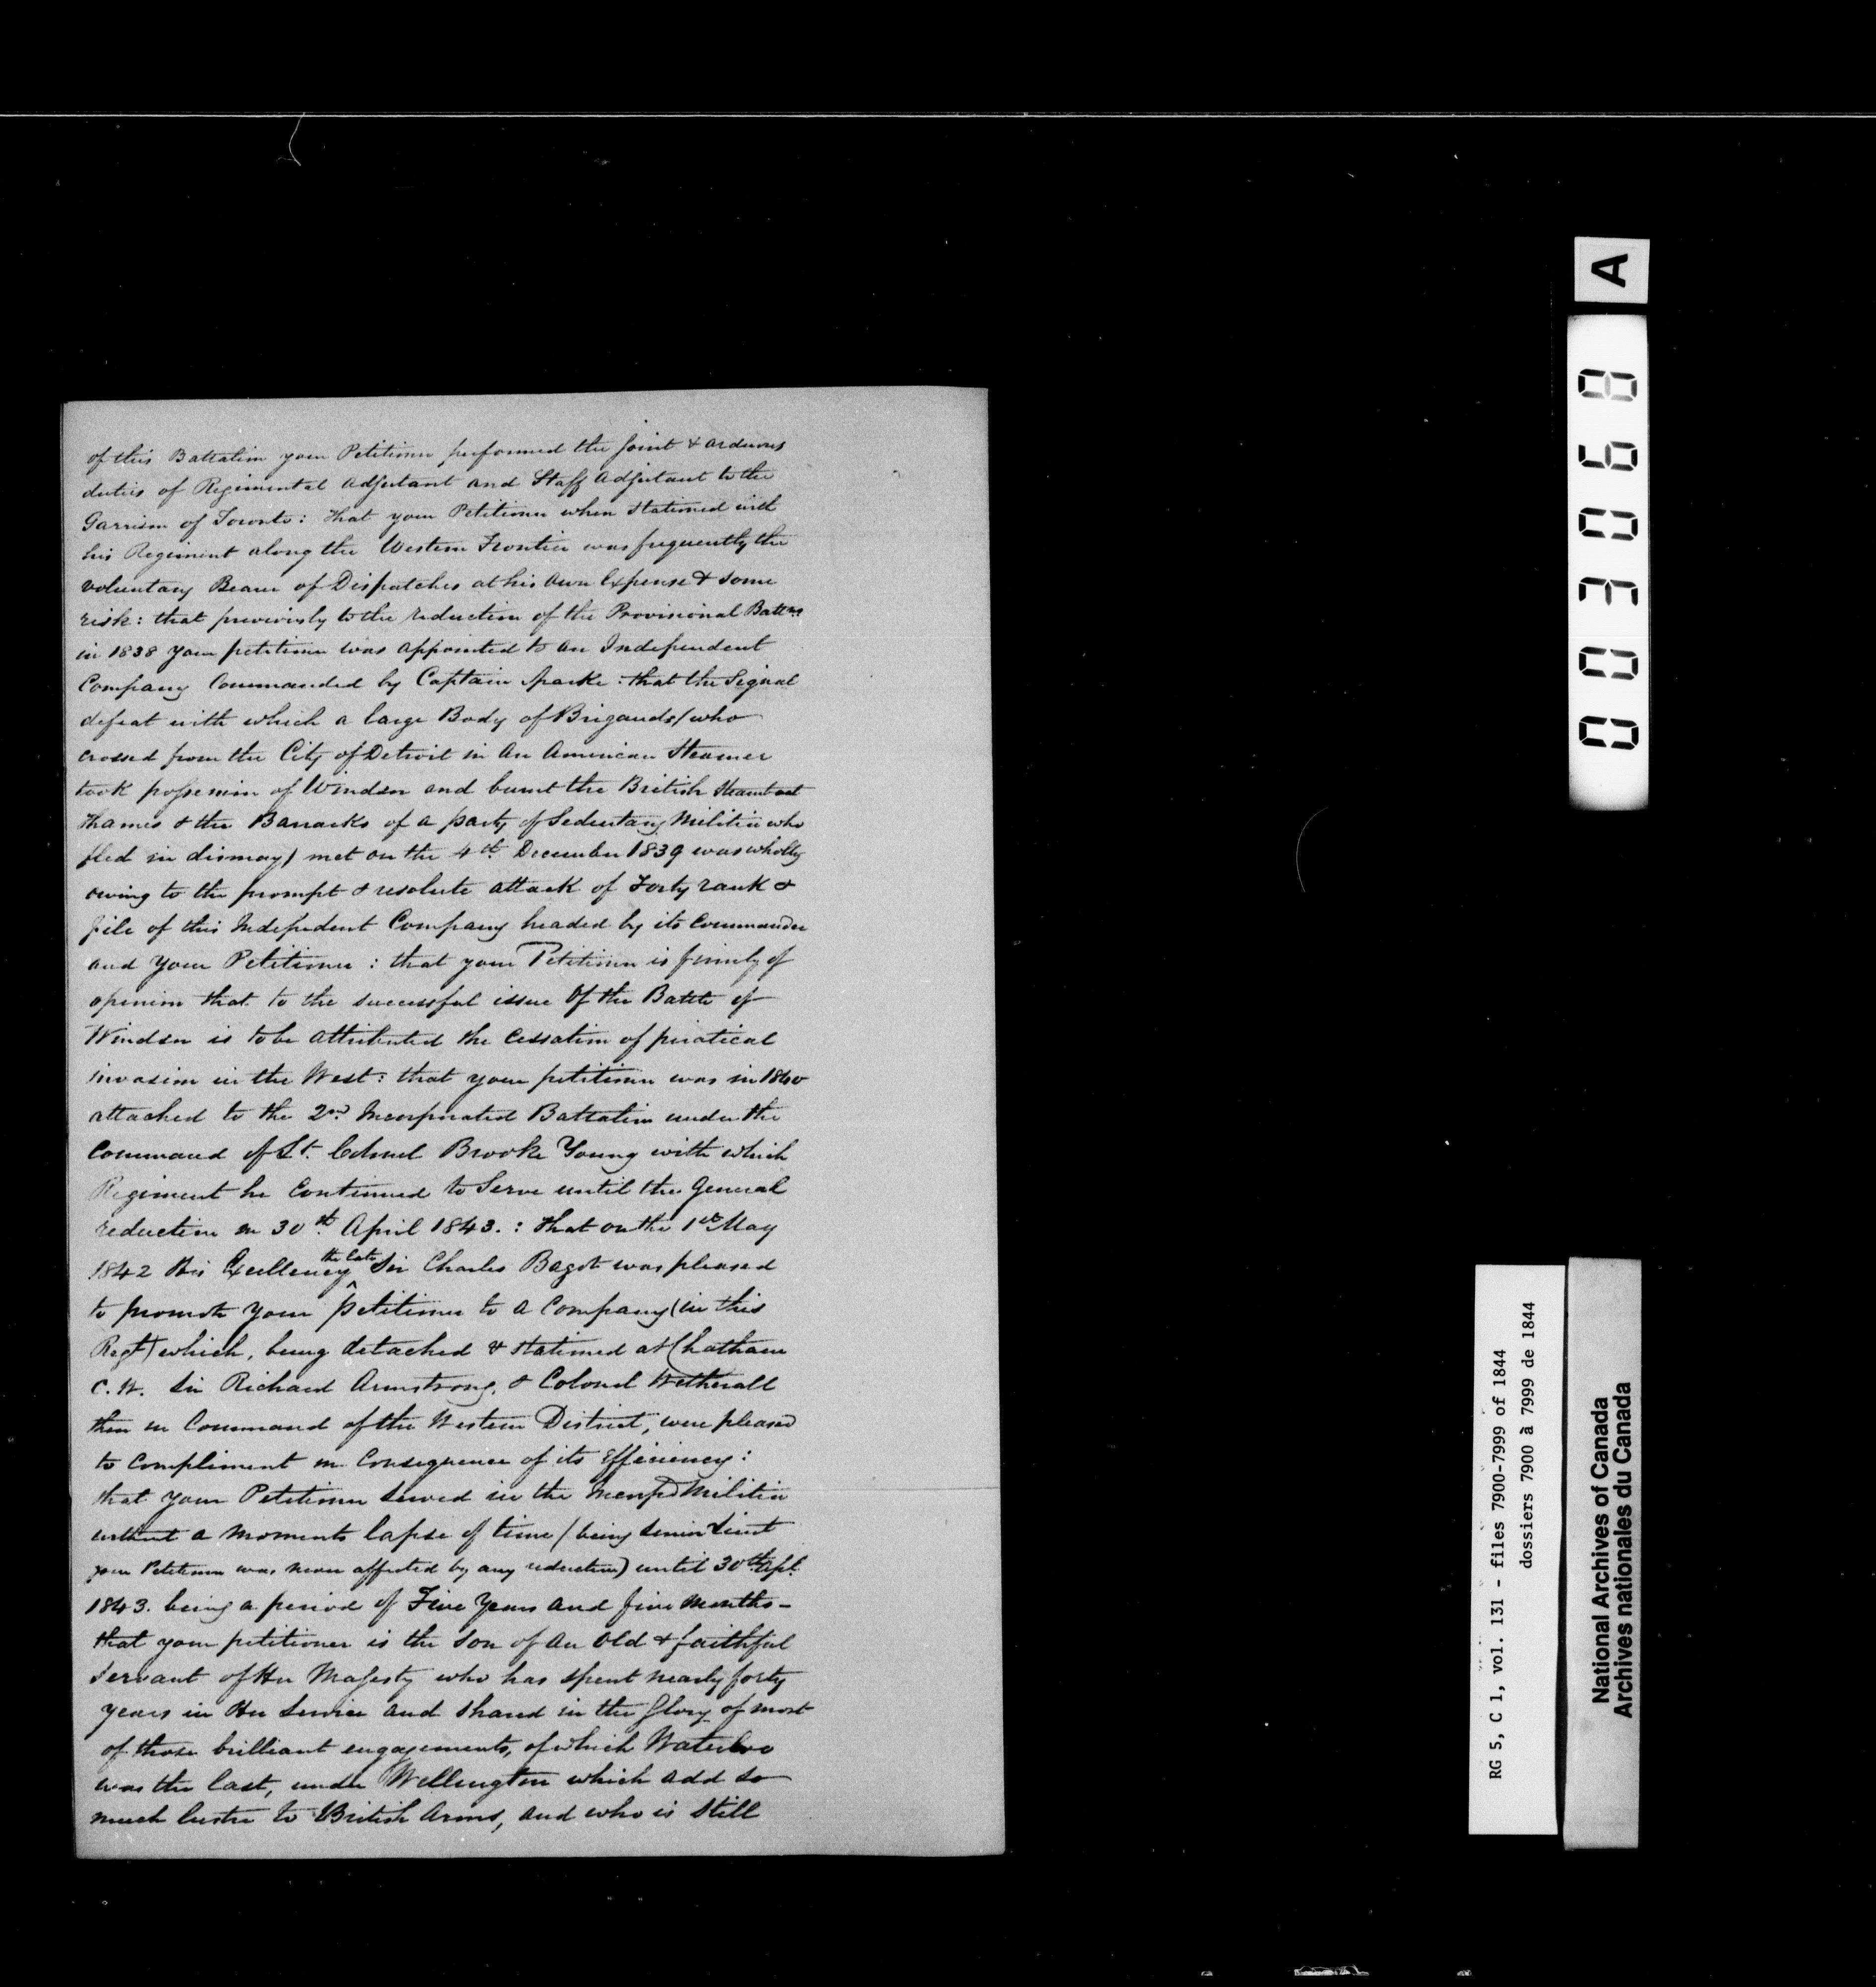 of this Battalion your Petitioner performed the joint & arduous
duties of Regimental Adjutant and Staff Adjutant to the
Garrison of Toronto: that your Petitioner when stationed with
his Regiment along the Western Frontier was frequently the
voluntary Bearer of Dispatches at his own Expense & some
risk: that previously to the reduction of the Provisional Battns
in 1838 your petitioner was appointed to an Independent
Company Commanded by Captain Sparke: that the Signal
defeat with which a large Body of Brigands (who
crossed from the City of Detroit in an American Steamer
took possession of Windsor and burnt the British Steamboat
Thames & the Barracks of a party of Sedentary Militia who
fled in dismay) met on the 4th December 1839 was wholly
owing to the prompt & resolute attack of Forty rank &
file of this Independent Company headed by its Commander
and Your Petitioner: that your Petitioner is firmly of
opinion that to the successful issue of the Battle of
Windsor is to be attributed the Cessation of piratical
invasion in the West: that your petitioner was in 1840
attached to the 2nd Incorporated Battalion under the
Command of Lt. Colonel Brooke Young with which
Regiment he Continued to Serve until the General
reduction on 30th April 1843.: that on the 1st May
1842 His Excellency the late Sir Charles Bagot was pleased
to promote your petitioner to a Company (in this
Regt) which, being detached & stationed at Chatham
C.W. Sir Richard Armstrong, & Colonel Wetherall
then in Command of the Western District, were pleased
to Compliment in Consequence of its Efficiency:
that your Petitioner Served in the Incorpd Militia
without a moments lapse of time (being Senior Lieut
your Petitioner was never affected by any reduction) until 30th Sept.
1843. being a period of Five Years and five months -
that your petitioner is the Son of an Old & faithful
Servant of Her Majesty who has spent nearly forty
years in Her Service and shared in the Glory of most
of those brilliant engagements, of which Waterloo
was the last, under Wellington which add so
much lustre to British Arms, and who is still
A
003068
RG 5, C 1, vol. 131 - files 7900-7999 of 1844
dossiers 7900 à 7999 de 1844
National Archives of Canada
Archives nationales du Canada